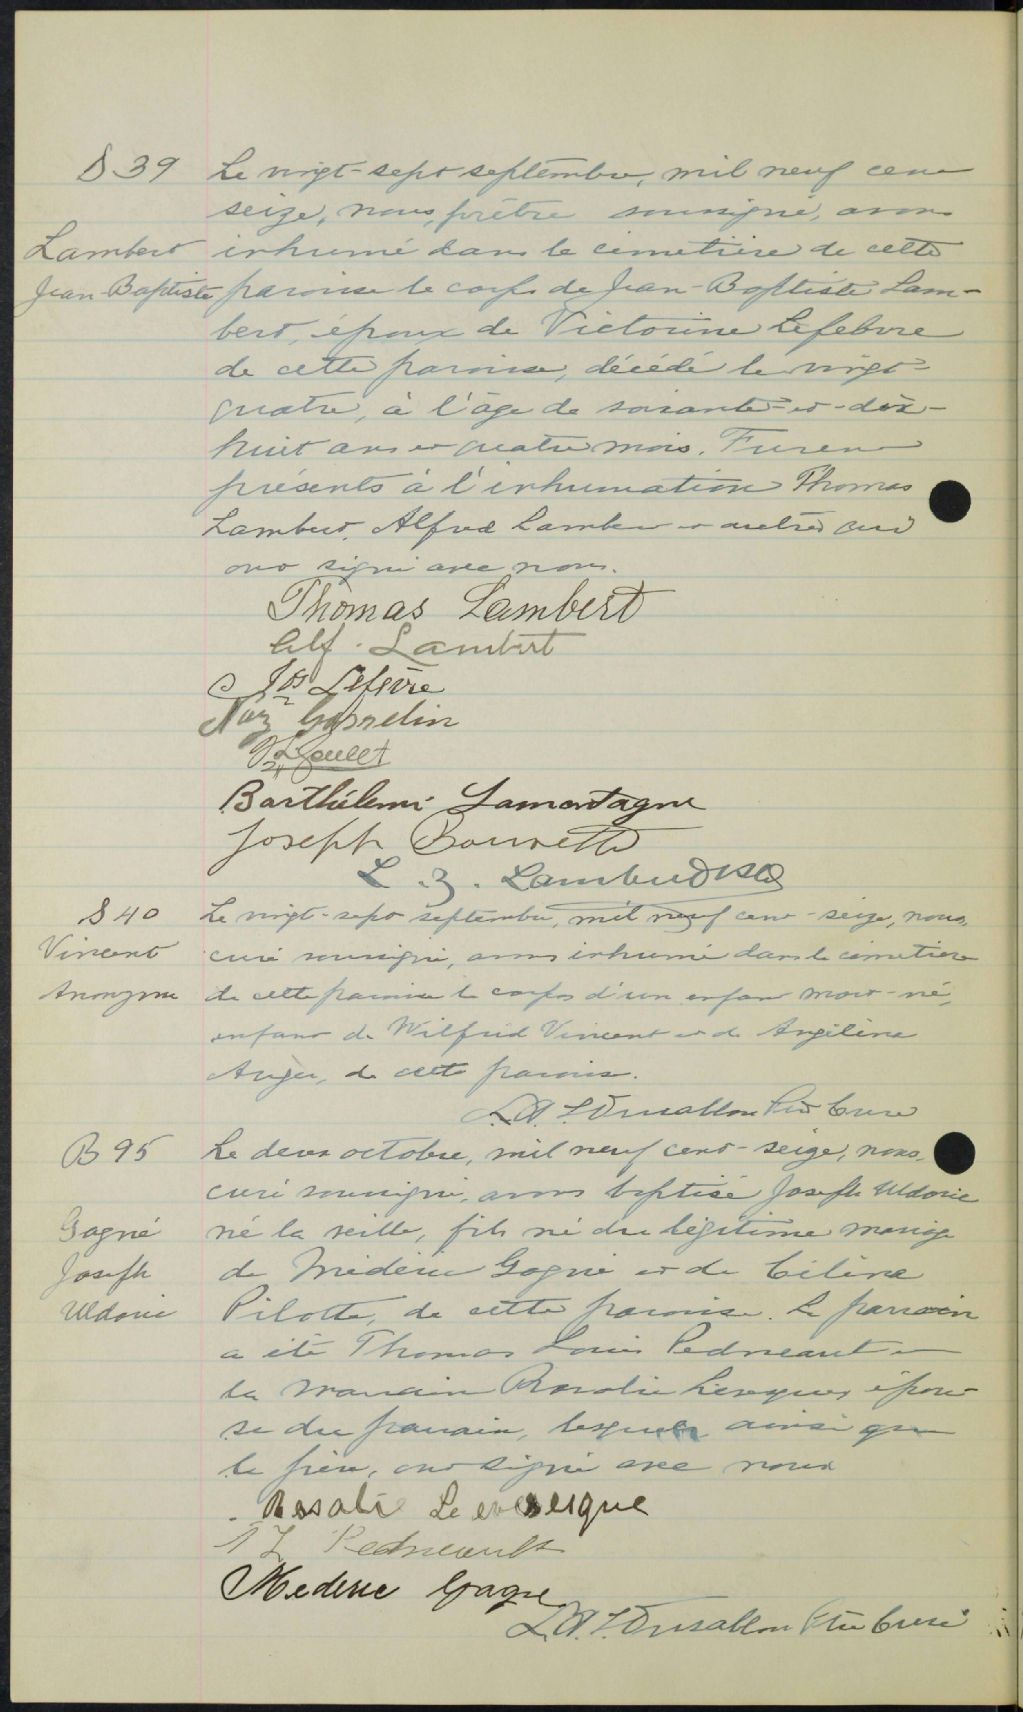 S 39
Lambert
Jean-Baptiste
Le vingt-sept septembre, mil neuf cent
seize, nous, prêtre soussigné, avons
inhumé dans le cimetière de cette
paroisse le corps de Jean-Baptiste Lam-
bert, époux de Victorine Lefebvre
de cette paroisse, décédé le vingt-
quatre, à l'âge de soixante-et-dix-
huit ans et quatre mois. Furent
présents à l'inhumation Thomas
Lambert, Alfred Lambert et autres qui
ont signé avec nous.
Thomas Lambert
Alf. Lambert
Jos Lefevre
Naz Gosselin
Goulet
Barthélemi Lamontagne
Joseph Bourrette
L. Z. Lambert
S 40
Vincent
Anonyme
Le vingt-sept septembre, mil neuf cent-seize, nous,
curé soussigné, avons inhumé dans le cimetière
de cette paroisse le corps d'un enfant mort-né,
enfant de Wilfrid Vincent et de Angélina
Auger, de cette paroisse.
L. A. L. Dusablon Ptre Curé
B 95
Gagné
Joseph
Uldoric
Le deux octobre, mil neuf cent-seize, nous,
curé soussigné, avons baptisé Joseph Uldoric
né la veille, fils né du légitime mariage
de Médéric Gagné et de Céline
Pilotte, de cette paroisse. Le parrain
a été Thomas Louis Pedneault et
la marraine Rosalie Levesque, épou-
se du parrain, lesquels ainsi que
le père, ont signé avec nous
Rosalie Levesque
T L Pedneault
Mederic Gagne
L. A. L. Dusablon Ptre Curé